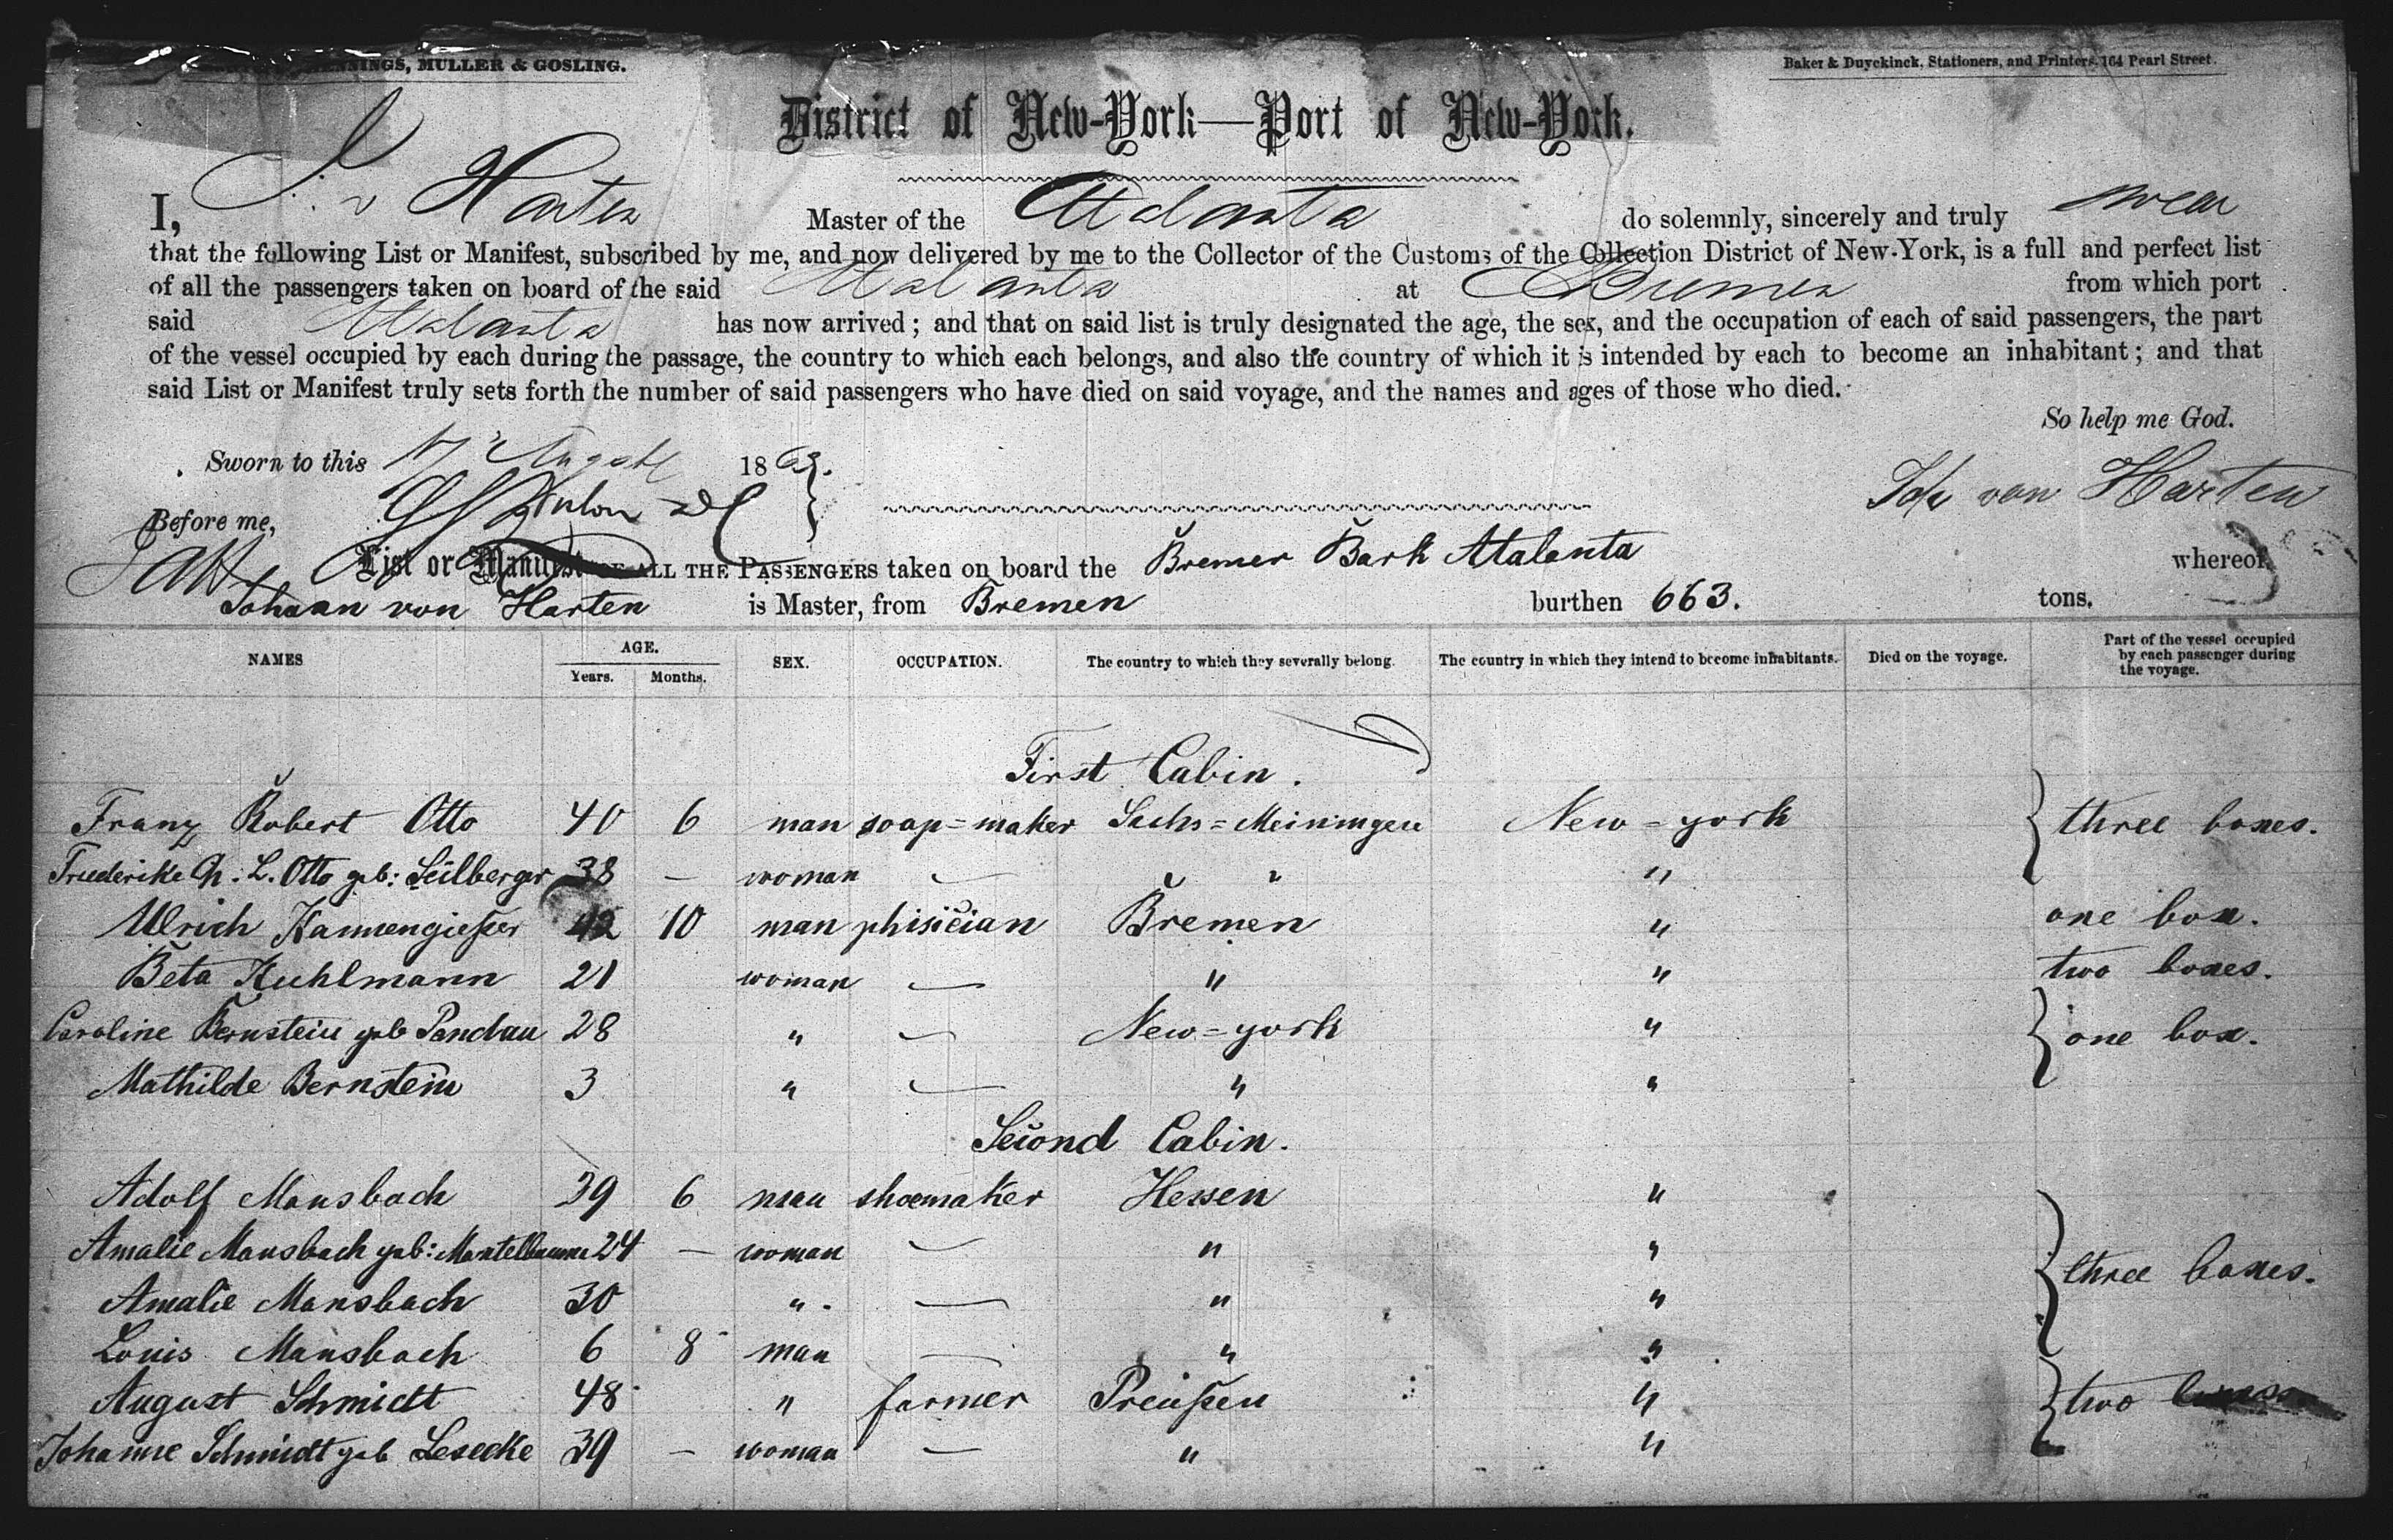 NNINGS, MULLER & GOSLING.
Baker & Duyckinck, Stationers, and Printers, 164 Pearl Street.
District of New-York—Port of New-York.
I, J. v Harten Master of the Atalanta do solemnly, sincerely and truly swear
that the following List or Manifest, subscribed by me, and now delivered by me to the Collector of the Customs of the Collection District of New-York, is a full and perfect list
of all the passengers taken on board of the said Atalanta at Bremen from which port
said Atalanta has now arrived; and that on said list is truly designated the age, the sex, and the occupation of each of said passengers, the part
of the vessel occupied by each during the passage, the country to which each belongs, and also the country of which it is intended by each to become an inhabitant; and that
said List or Manifest truly sets forth the number of said passengers who have died on said voyage, and the names and ages of those who died.
So help me God.
Sworn to this 17 186
Joh von Harten
Before me,
List or Manifest OF ALL THE PASSENGERS taken on board the Bremer Bark Atalanta whereof
Johann von Harten is Master, from Bremen burthen 663. tons.
NAMES AGE. Years. Months. SEX. OCCUPATION. The country to which they severally belong. The country in which they intend to become inhabitants. Died on the voyage. Part of the vessel occupied by each passenger during the voyage.
First Cabin.
Franz Robert Otto 40 6 man soap=maker Sachs=Meiningen New=york three boxes.
Friederike Ch: L. Otto geb: Seilberger 38 — woman — " "
Ulrich Kannengießer 42 10 man phisician Bremen " one box.
Beta Kuhlmann 21 woman — " " two boxes.
Caroline Bernstein geb Pandau 28 " — New=york " one box.
Mathilde Bernstein 3 " — " "
Second Cabin.
Adolf Mansbach 39 6 man shoemaker Hessen "
Amalie Mansbach geb: Mantelbaume 24 — woman — " " three boxes.
Amalie Mansbach 30 " — " "
Louis Mansbach 6 8 man — " "
August Schmidt 48 " farmer Preußen " two boxes
Johanne Schmidt geb Lesecke 39 — woman — " "